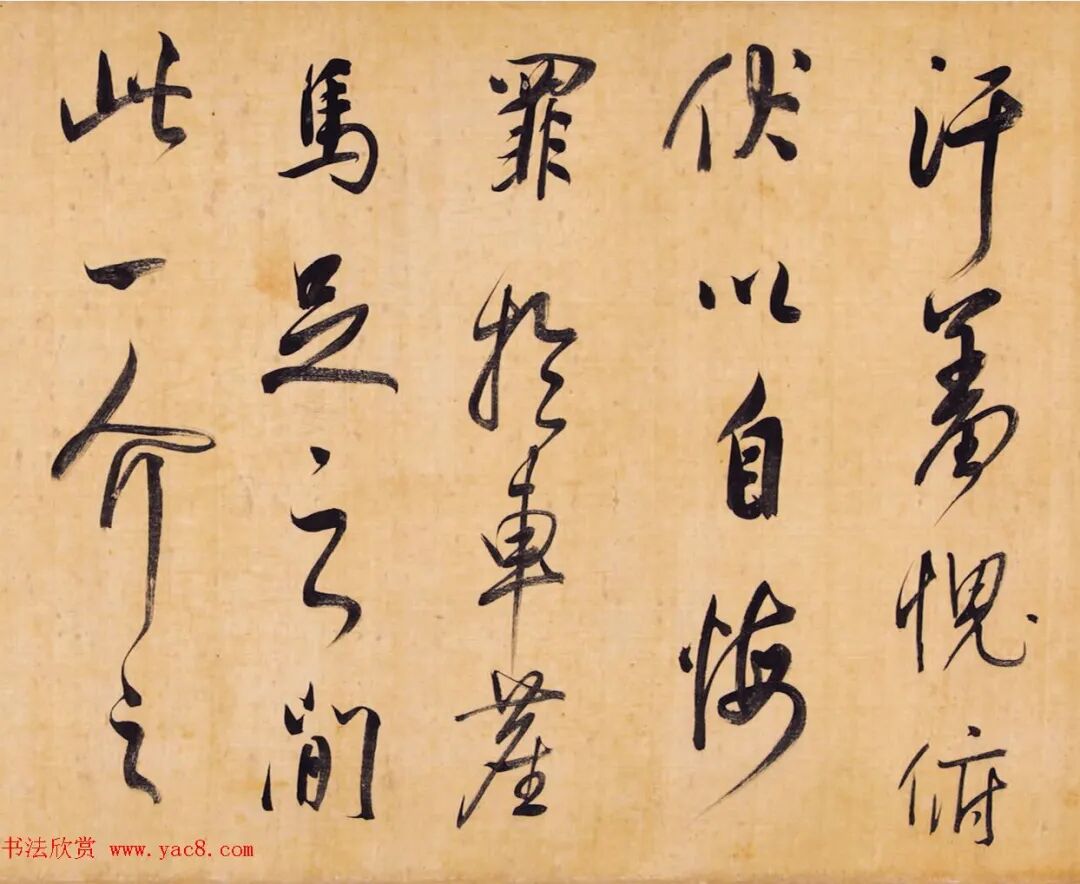 汗羞愧俯
伏以自悔
罪於車塵
馬足之閒
此一介之
书法欣赏 www.yac8.com